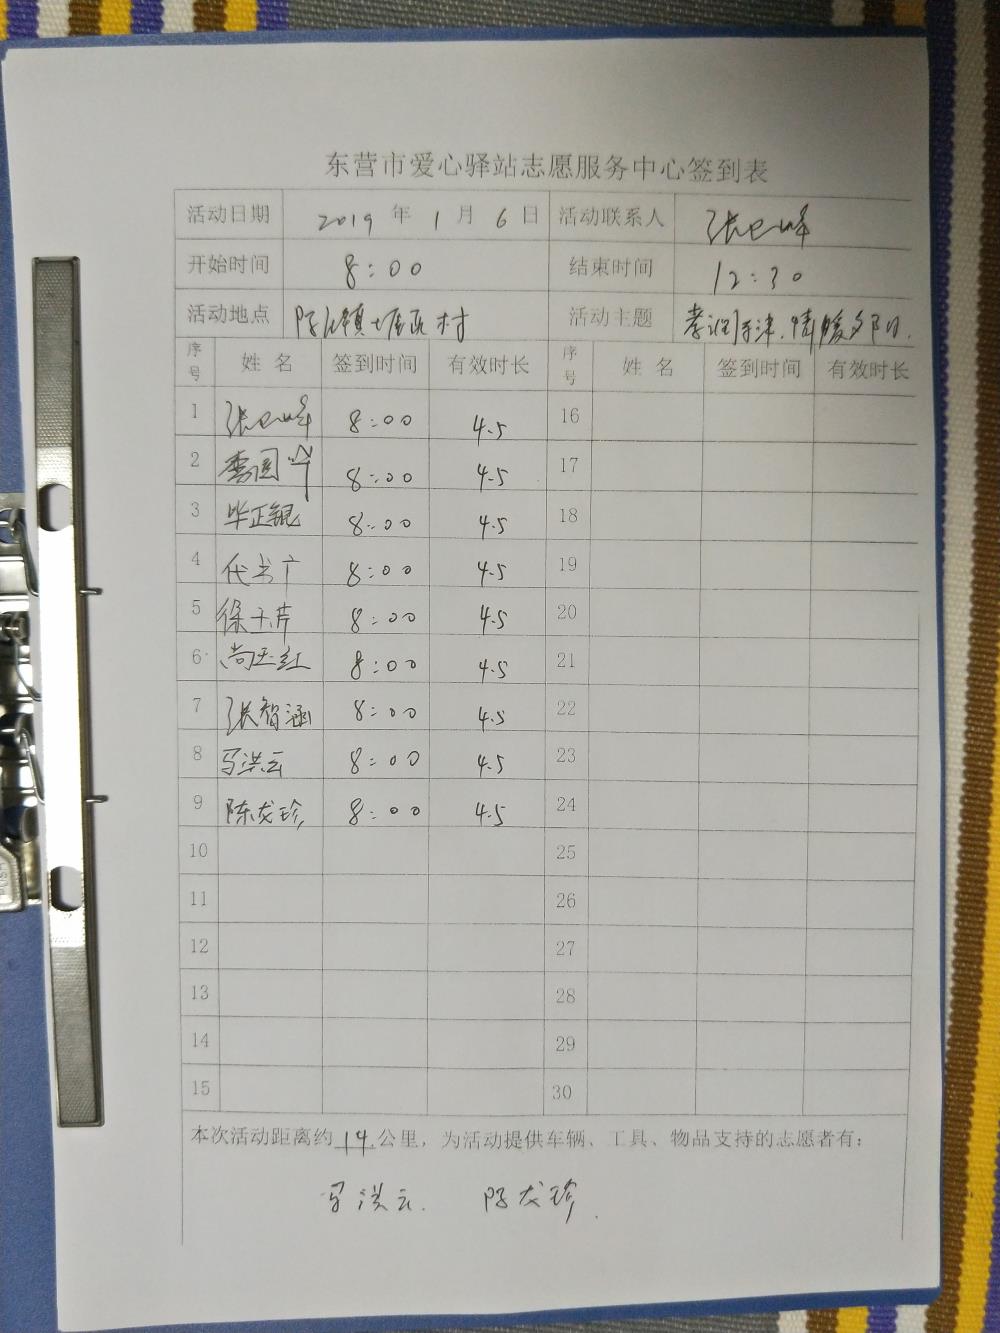 东营市爱心驿站志愿服务中心签到表
活动日期 2019 年 1 月 6 日 活动联系人
开始时间 8:00 结束时间 12:30
活动地点 活动主题
序号 姓 名 签到时间 有效时长 序号 姓 名 签到时间 有效时长
1 8:00 4.5 16
2 8:00 4.5 17
3 毕正锟 8:00 4.5 18
4 代书广 8:00 4.5 19
5 徐玉芹 8:00 4.5 20
6 尚玉红 8:00 4.5 21
7 张智涵 8:00 4.5 22
8 马洪云 8:00 4.5 23
9 陈龙珍 8:00 4.5 24
10 25
11 26
12 27
13 28
14 29
15 30
本次活动距离约 14 公里，为活动提供车辆、工具、物品支持的志愿者有：
马洪云. 陈龙珍.